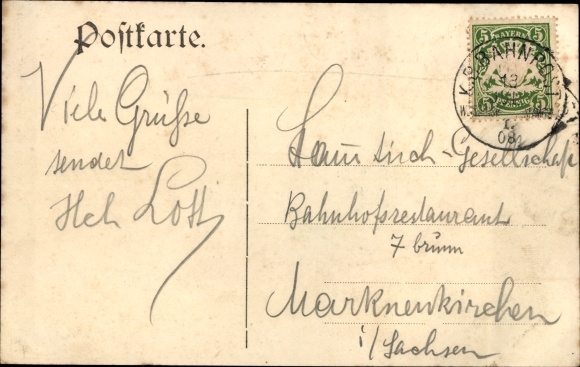 Postkarte.
Viele Grüße
sendet
Lott
5 BAYERN 5
5 PFENNIG 5
K.B. BAHNPOST
13
I.
08
Gesellschaft
Bahnhofsrestaurant
7 brunn
Markneukirchen
i/Sachsen